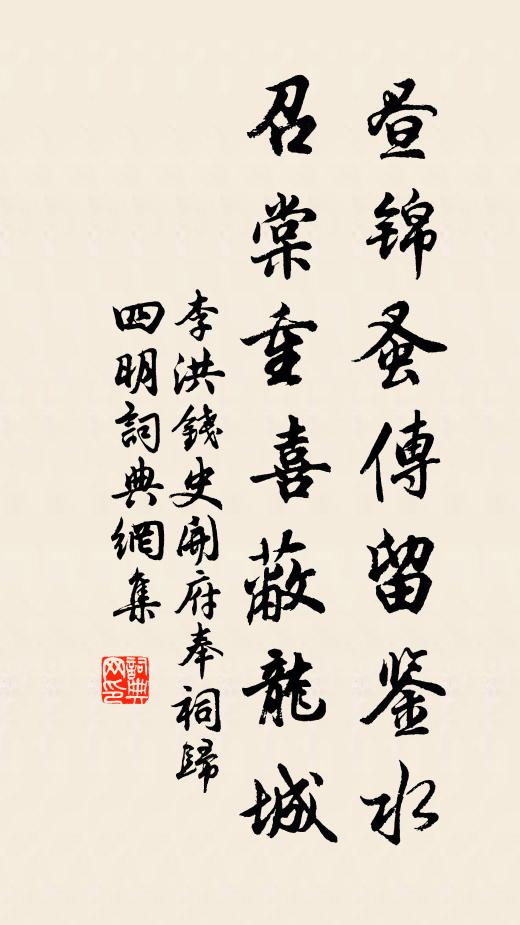 昼錦蚤傳留鑒水
召棠重喜蔽龍城
李洪錢史開府奉祠歸
四明詞典網集
詞典
网印